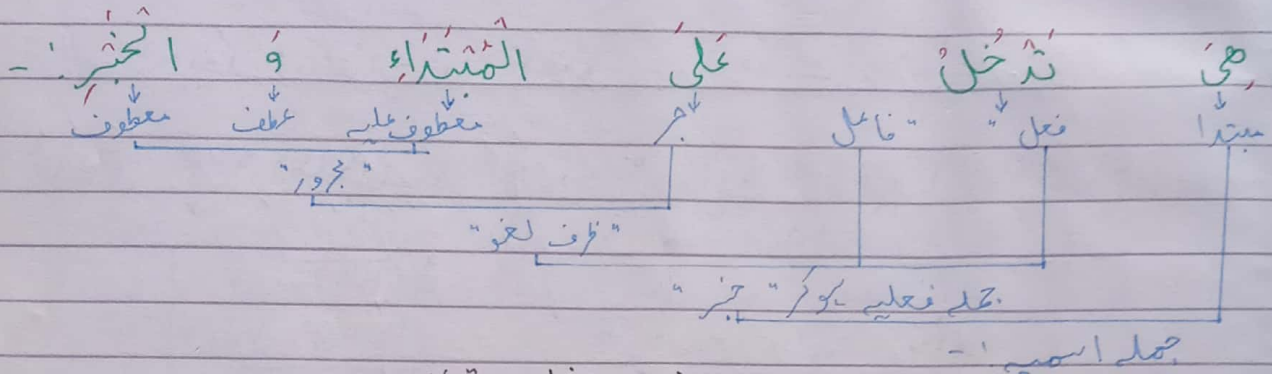 هِیَ تَدْخُلُ عَلیَ الْمُبْتَدَاءِ وَ الْخَبَرِ :-
مبتدا فعل "فاعل" جر معطوف علیہ عطف معطوف
"مجرور"
"ظرف لغو"
جملہ فعلیہ ہوکر "خبر"
جملہ اسمیہ :-